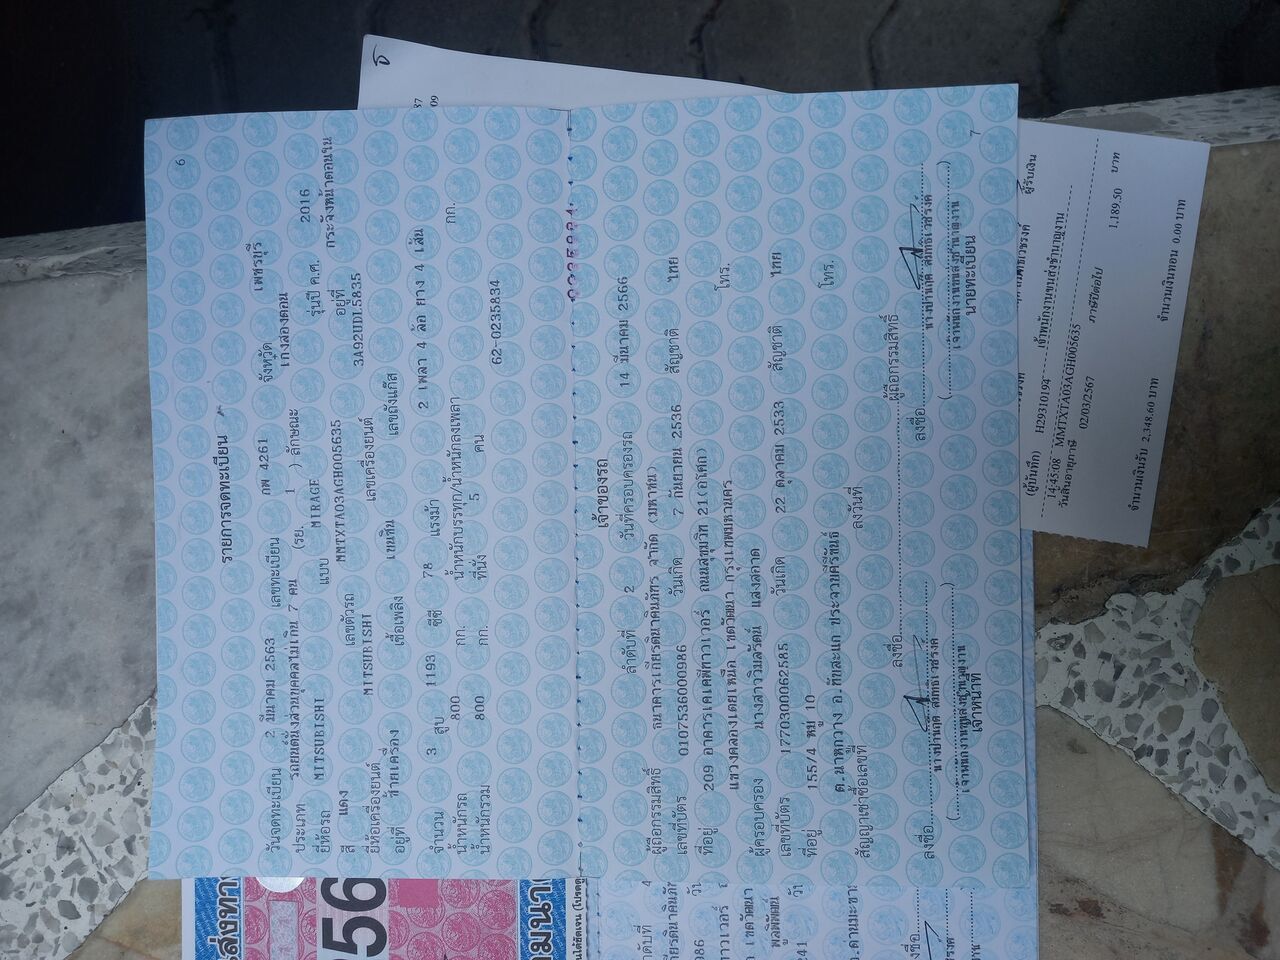 6
รายการจดทะเบียน
วันจดทะเบียน 2 มีนาคม 2563 เลขทะเบียน กพ 4261 จังหวัด เพชรบุรี
ประเภท รถยนต์นั่งส่วนบุคคลไม่เกิน 7 คน (รย. 1 ) ลักษณะ เก๋งสองตอน
ยี่ห้อรถ MITSUBISHI แบบ MIRAGE รุ่นปี ค.ศ. 2016
สี แดง เลขตัวรถ MMTXTA03AGH005635 อยู่ที่ กระจังหน้าตอนใน
ยี่ห้อเครื่องยนต์ MITSUBISHI เลขเครื่องยนต์ 3A92UDL5835
อยู่ที่ ซ้ายเครื่อง เชื้อเพลิง เบนซิน เลขถังแก๊ส
จำนวน 3 สูบ 1193 ซีซี 78 แรงม้า 2 เพลา 4 ล้อ ยาง 4 เส้น
น้ำหนักรถ 800 กก. น้ำหนักบรรทุก/น้ำหนักลงเพลา กก.
น้ำหนักรวม 800 กก. ที่นั่ง 5 คน
62-0235834
7
เจ้าของรถ
ลำดับที่ 2 วันที่ครอบครองรถ 14 มีนาคม 2566
ผู้ถือกรรมสิทธิ์ ธนาคารเกียรตินาคินภัทร จำกัด (มหาชน)
เลขที่บัตร 0107536000986 วันเกิด 7 กันยายน 2536 สัญชาติ ไทย
ที่อยู่ 209 อาคารเคเคพีทาวเวอร์ ถนนสุขุมวิท 21(อโศก) โทร.
แขวงคลองเตยเหนือ เขตวัฒนา กรุงเทพมหานคร
ผู้ครอบครอง นางสาววิมลรัตน์ แสงสอาด
เลขที่บัตร 1770300062585 วันเกิด 22 ตุลาคม 2533 สัญชาติ ไทย
ที่อยู่ 155/4 หมู่ 10 โทร.
ต.นาหูกวาง อ.ทับสะแก ประจวบคีรีขันธ์
สัญญาเช่าซื้อเลขที่ ลงวันที่
ลงชื่อ ผู้ถือกรรมสิทธิ์
ลงชื่อ ลงชื่อ
เจ้าหน้าที่ นายทะเบียน
(ผู้บันทึก) H29310194 เจ้าพนักงานขนส่งชำนาญงาน ผู้รับเงิน
14:45:08 MMTXTA03AGH005635
วันสิ้นอายุภาษี 02/03/2567 ภาษีปีต่อไป 1,189.50 บาท
จำนวนเงินรับ 2,348.60 บาท จำนวนเงินทอน 0.00 บาท